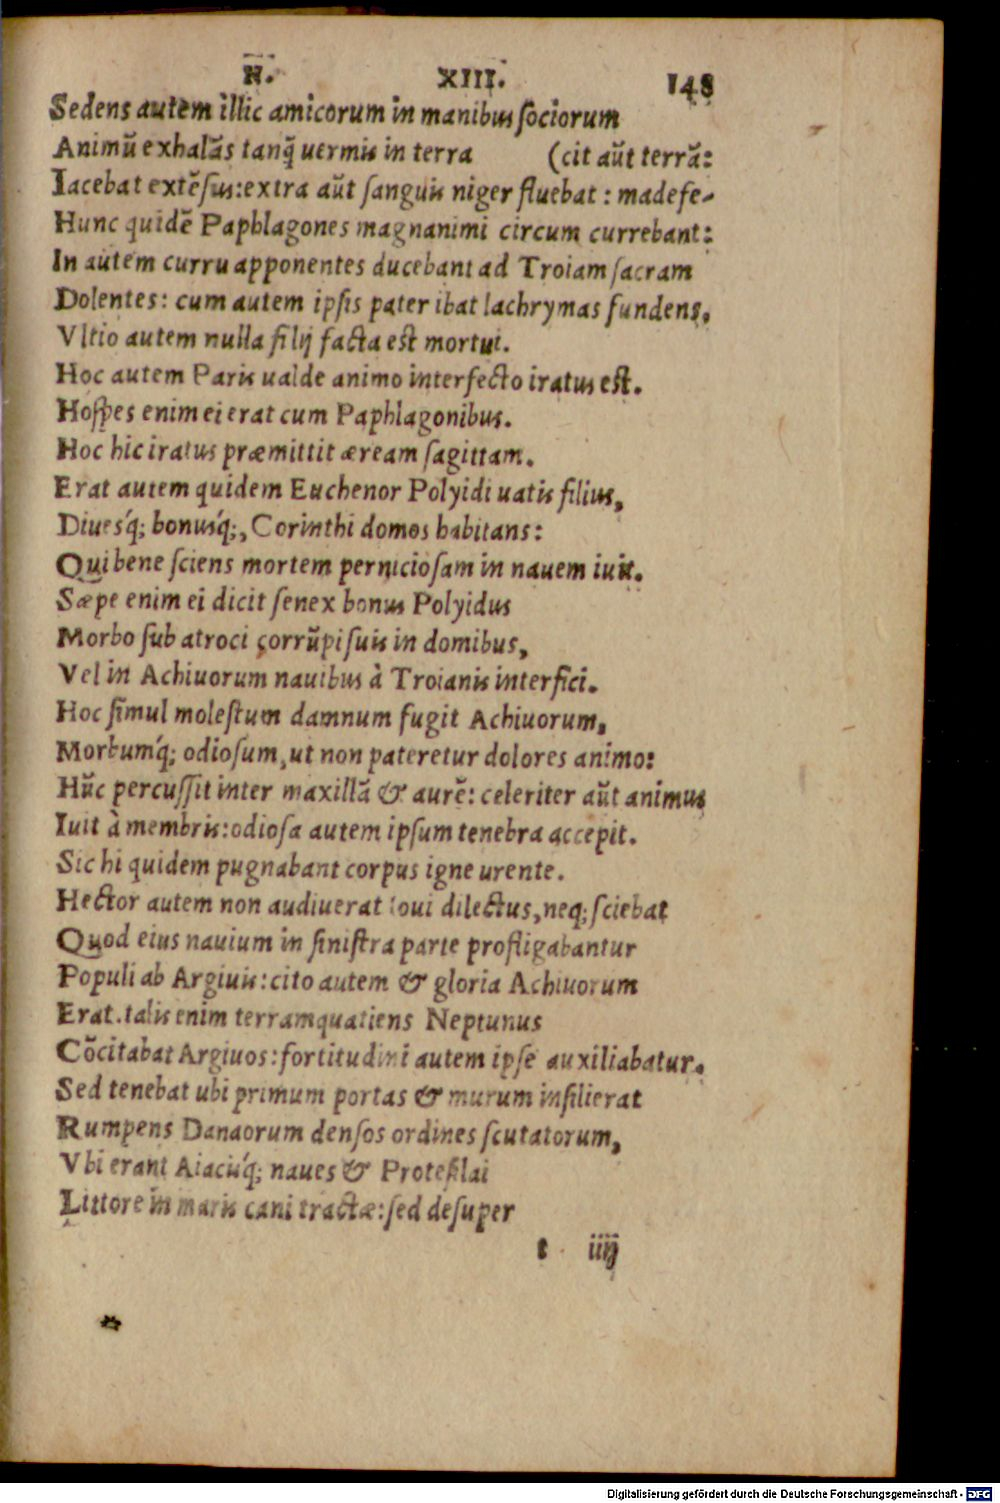 N. XIII. 148
Sedens autem illic amicorum in manibus sociorum
Animū exhalās tanq̄ uermis in terra (cit aūt terrā:
Iacebat extēsus: extra aūt sanguis niger fluebat : madefe-
Hunc quidē Paphlagones magnanimi circum currebant:
In autem curru apponentes ducebant ad Troiam sacram
Dolentes: cum autem ipsis pater ibat lachrymas fundens,
Vltio autem nulla filij facta est mortui.
Hoc autem Paris ualde animo interfecto iratus est.
Hospes enim ei erat cum Paphlagonibus.
Hoc hic iratus præmittit æream sagittam.
Erat autem quidem Euchenor Polyidi uatis filius,
Diuesq́; bonusq́;, Corinthi domos habitans:
Qui bene sciens mortem perniciosam in nauem iuit.
Sæpe enim ei dicit senex bonus Polyidus
Morbo sub atroci corrūpi suis in domibus,
Vel in Achiuorum nauibus à Troianis interfici.
Hoc simul molestum damnum fugit Achiuorum,
Morbumq́; odiosum, ut non pateretur dolores animo:
Hūc percussit inter maxillā & aurē: celeriter aūt animus
Iuit à membris: odiosa autem ipsum tenebra accepit.
Sic hi quidem pugnabant corpus igne urente.
Hector autem non audiuerat Ioui dilectus, neq; sciebat
Quod eius nauium in sinistra parte profligabantur
Populi ab Argiuis: cito autem & gloria Achiuorum
Erat. talis enim terram quatiens Neptunus
Cōcitabat Argiuos: fortitudini autem ipse auxiliabatur.
Sed tenebat ubi primum portas & murum insilierat
Rumpens Danaorum densos ordines scutatorum,
Vbi erant Aiacisq́; naues & Protesilai
Littore in maris cani tractæ: sed desuper
t iiij
Digitalisierung gefördert durch die Deutsche Forschungsgemeinschaft - DFG